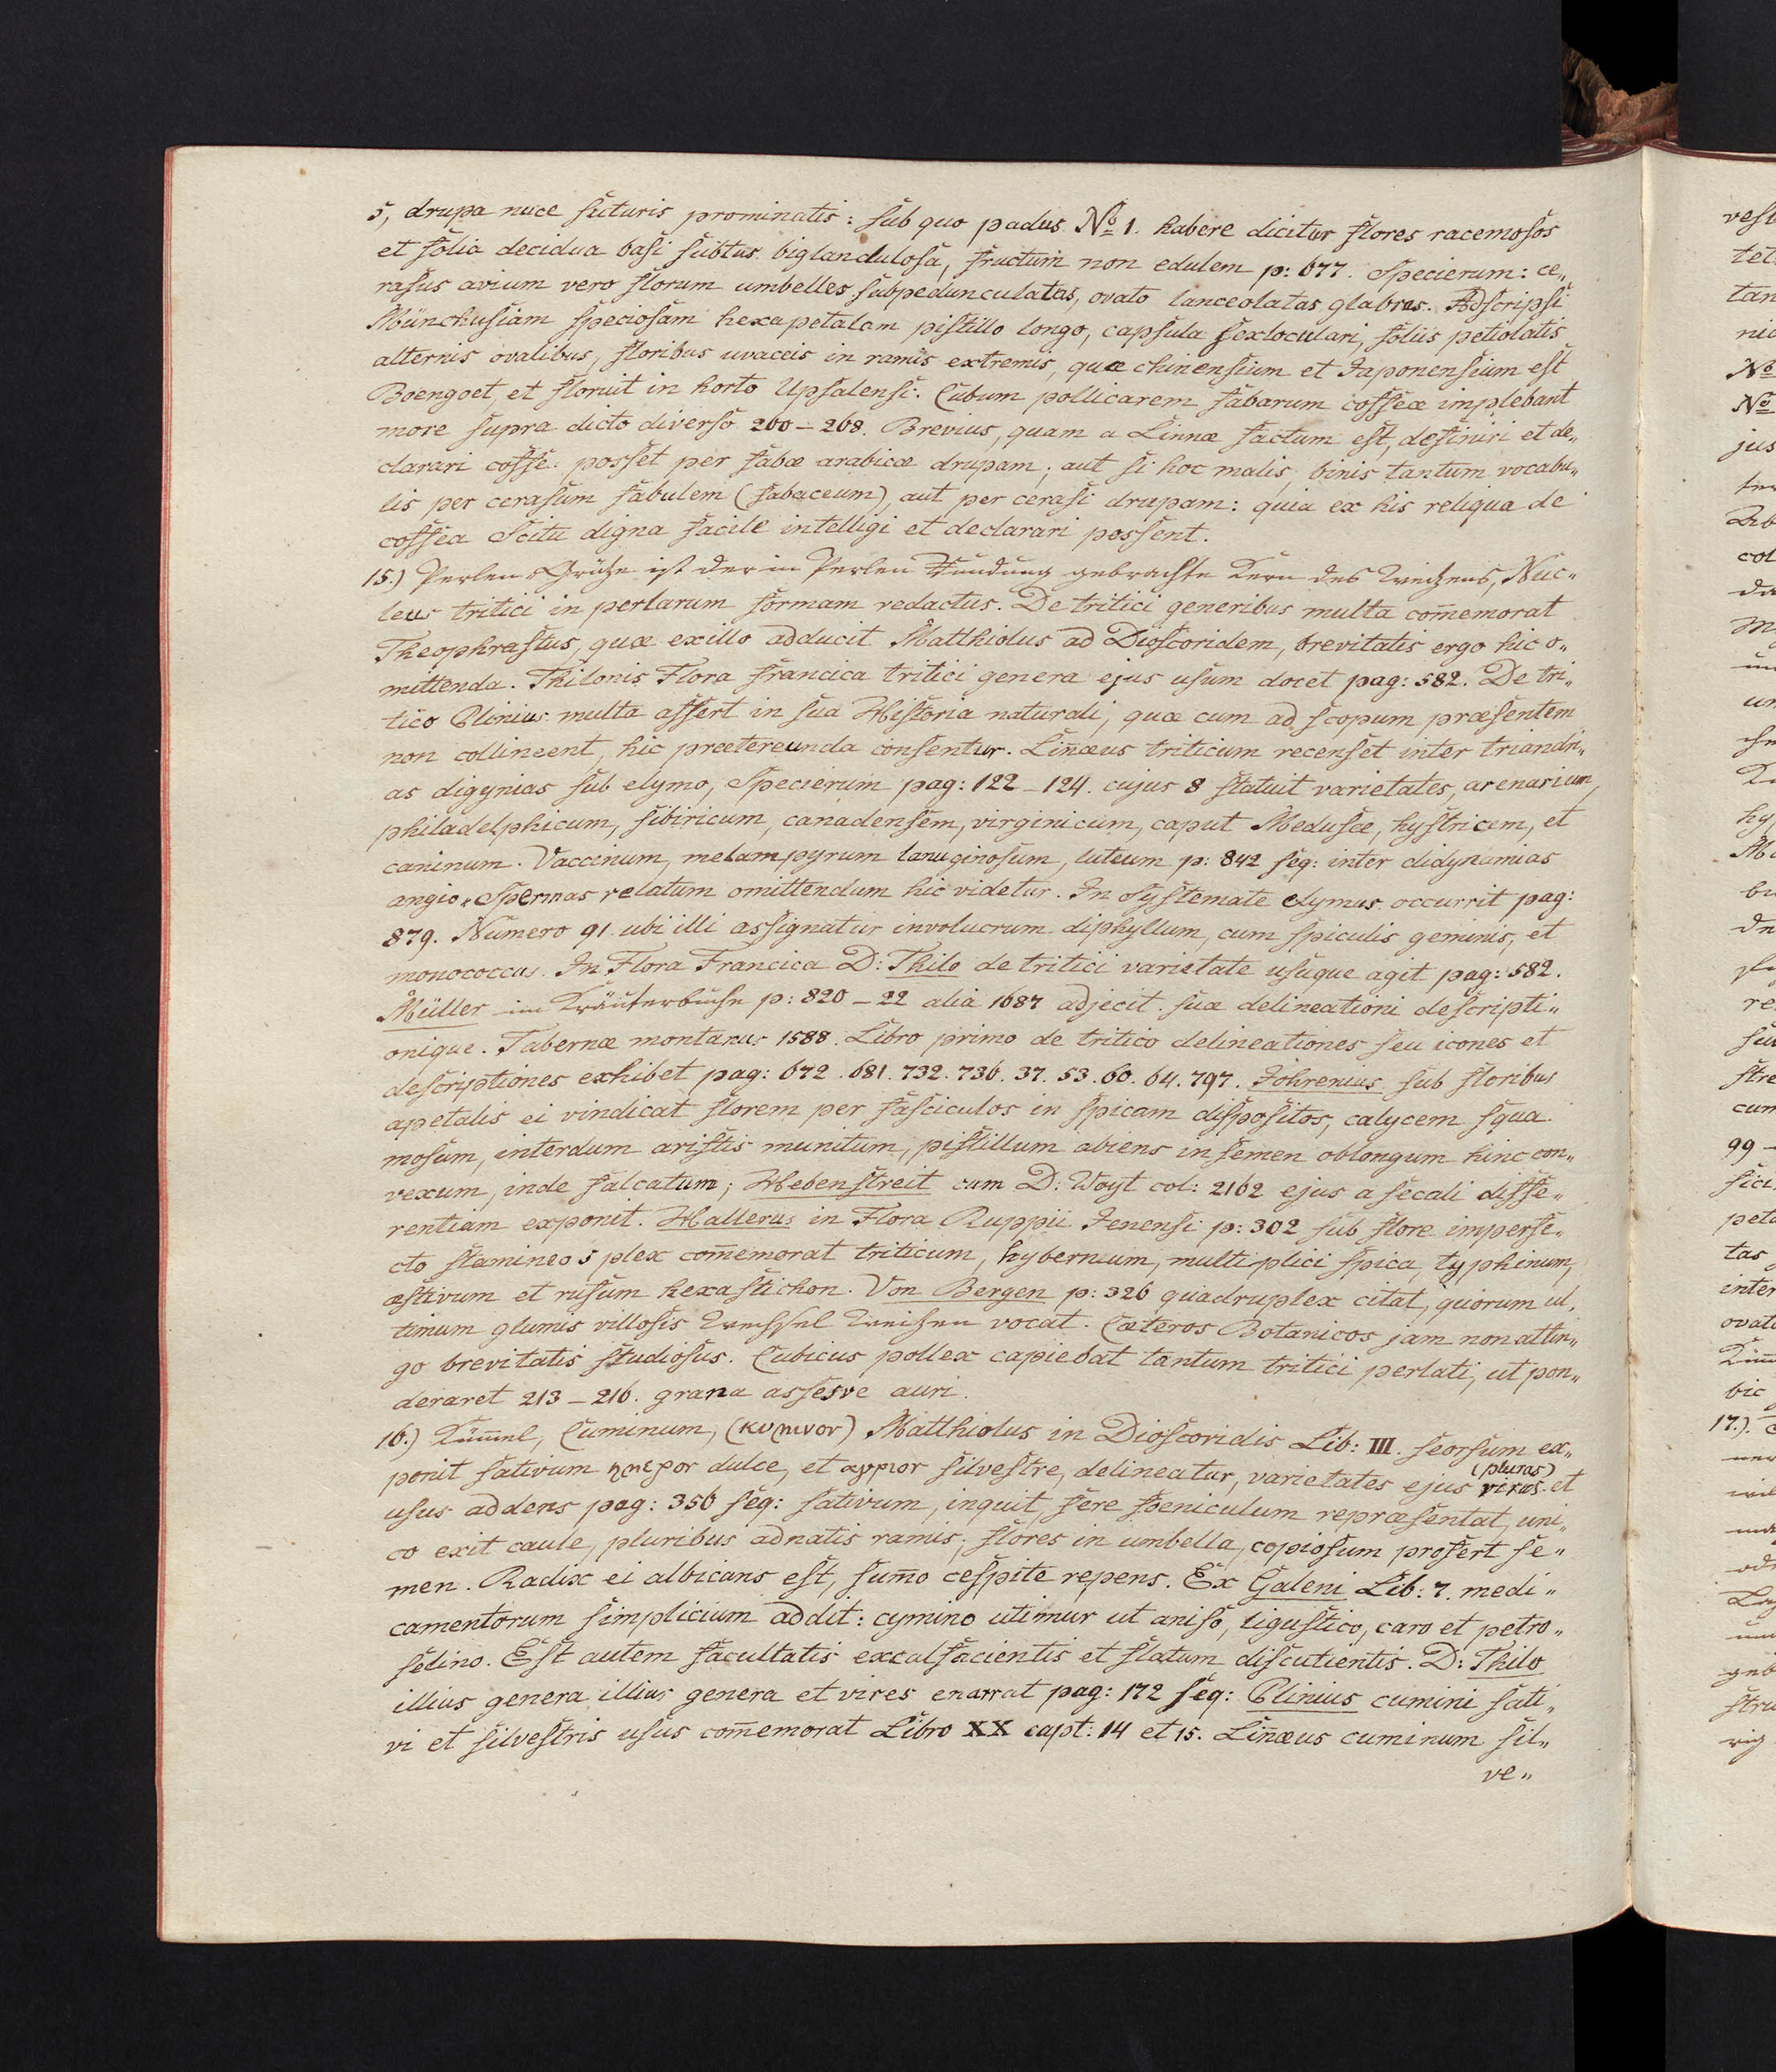 5, drupa nuce suturis prominatis: sub quo padus No 1. habere dicitur flores racemosos
et folia decidua basi subtus biglandulosa, fructum non edulem p: 677. Specierum: ce„
rasus avium vero florum umbelles subpedunculatas, ovato lanceolatas glabras. Adscripsi
Münchusiam speciosam hexapetalam pistillo longo, capsula sexloculari, foliis petiolatis
alternis ovalibus, floribus uvaceis in ramis extremis, quæ chinensium et Japonensium est
Boengoet, et floruit in horto Upsalensi. Cubum pollicarem fabarum coffeæ implebant
more supra dicto diverso 260–268. Brevius, quam a Linnæ factum est, definiri et de„
clarari coffe. posset per fabæ arabicæ drupam; aut si hoc malis, binis tantum vocabu„
lis per cerasum fabulem (fabaceum), aut per cerasi drupam: quia ex his reliqua de
coffea Scitu digna facile intelligi et declarari possent.
15.) Perlen-Grütze ist der in Perlen Ründung gebrachte Kern des Weitzens, Nuc„
leus tritici in perlarum formam redactus. De tritici generibus multa com̄emorat
Theophrastus, quæ ex illo adducit Matthiolus ad Dioscoridem, brevitatis ergo hic o„
mittenda. Thilonis Flora francica tritici genera ejus usum docet pag: 582. De tri„
tico Plinius multa affert in sua Historia naturali, quæ cum ad scopum præsentem
non collineent, hic prætereunda consentur. Lin̄æus triticum recenset inter triandri„
as digynias sub elymo, Specierum pag: 122–124. cujus 8 statuit varietates, arenarium,
philadelphicum, sibiricum, canadensem, virginicum, caput Medusæ, hystricem, et
caninum. Vaccinum, melampyrum lanuginosum, luteum p: 842 seq: inter didynamias
angio„Spermas relatum omittendum hic videtur. In Systemate elymus occurrit pag:
879. Numero 91 ubi illi assignatur involucrum diphyllum, cum spiculis geminis, et
monococcus. In Flora Francica D: Thilo de tritici varietate usuque agit pag: 582.
Müller im Kräuterbuche p: 820–22 alia 1687 adjecit suæ delineationi descripti„
onique. Tabernæ montanus 1588. Libro primo de tritico delineationes seu icones et
descriptiones exhibet pag: 672. 681. 732. 736. 37. 53. 60. 64. 797. Johrenius sub floribus
apetalis ei vindicat florem per fasciculos in spicam dispositos, calycem squa
mosum, interdum aristis munitum, pistillum abiens in semen oblongum hinc con„
vexum, inde falcatum; Hebenstreit cum D: Woyt col: 2162 ejus a secali diffe„
rentiam exponit. Hallerus in Flora Ruppii Jenensi p: 302 sub flore imperfe„
cto stamineo 5 plex com̄emorat triticum, hybernum, multiplici spica, typhinum,
æstivum et rufum hexastichon. Von Bergen p: 326 quadruplex citat, quorum ul„
timum glumis villosis Wechsel Weitzen vocat. Cæteros Botanicos jam non attin„
go brevitatis studiosus. Cubicus pollex capiebat tantum tritici perlati, ut pon„
deraret 213–216. grana assesve auri.
16.) Küm̄el, Cuminum, (κυμινον) Matthiolus in Dioscoridis Lib: III. seorsum ex„
ponit sativum ημερον dulce, et αγριον silvestre, delineatur, varietates ejus vires (pluras) et
usus addens pag: 356 seq: sativum, inquit, fere fœniculum repræsentat, uni„
co exit caule, pluribus adnatis ramis; flores in umbella, copiosum profert se„
men. Radix ei albicans est, sum̄o cespite repens. Ex Galeni Lib: 7. medi„
camentorum simplicium addit: cymino utimur ut aniso, ligustico, caro et petro„
selino. Est autem facultatis excalfacientis et flatum discutientis. D: Thilo
illius genera illius genera et vires enarrat pag: 172 seq: Plinius cumini sati„
vi et silvestris usus com̄emorat Libro XX capt: 14 et 15. Lin̄æus cuminum sil„
ve„